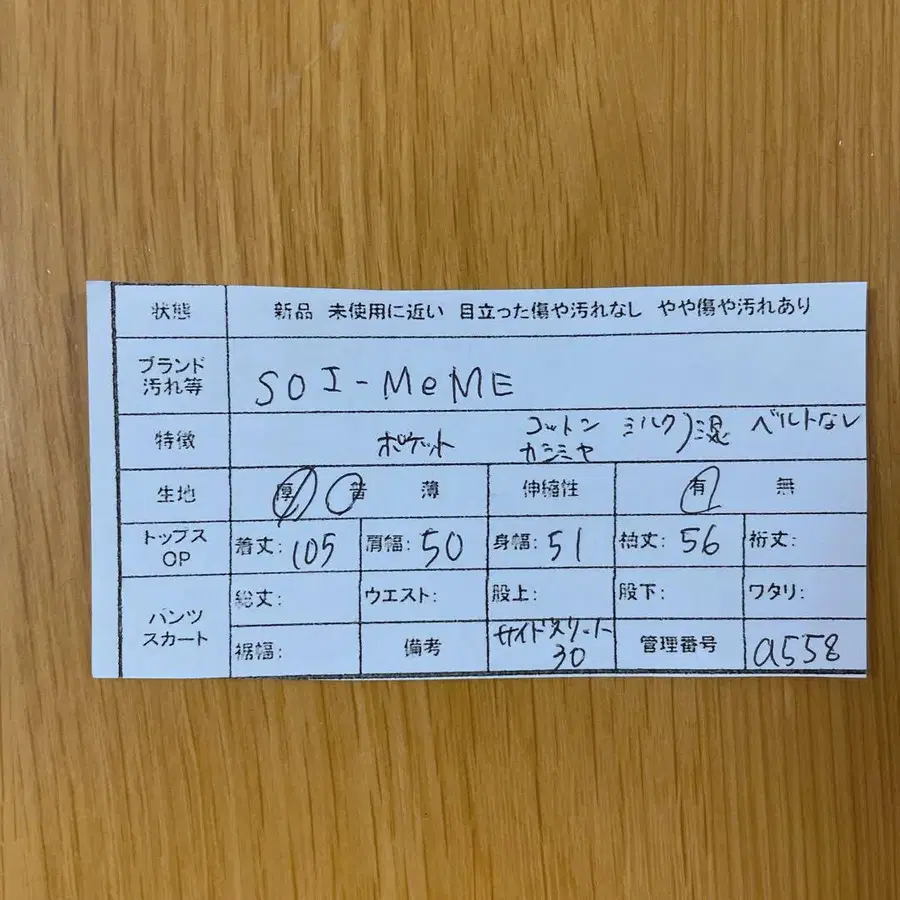 状態 新品 未使用に近い 目立った傷や汚れなし やや傷や汚れあり
ブランド
汚れ等
SOI-MeME
特徴 ポケット コットン ミルク)混 ベルトなし
カシミヤ
生地 厚 普 薄 伸縮性 有 無
トップス
OP
着丈: 105 肩幅: 50 身幅: 51 袖丈: 56 裄丈:
パンツ
スカート
総丈: ウエスト: 股上: 股下: ワタリ:
裾幅: 備考 サイドスリット
30
管理番号 a558